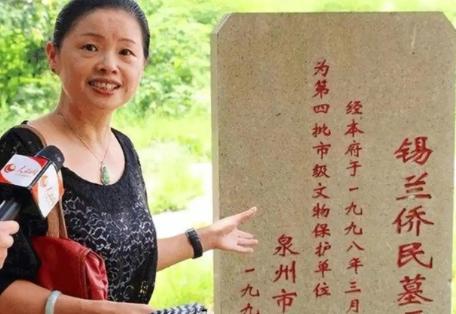 锡兰侨民墓
经本府于一九九八年三月
为第四批市级文物保护单位
泉州市
一九
人民网